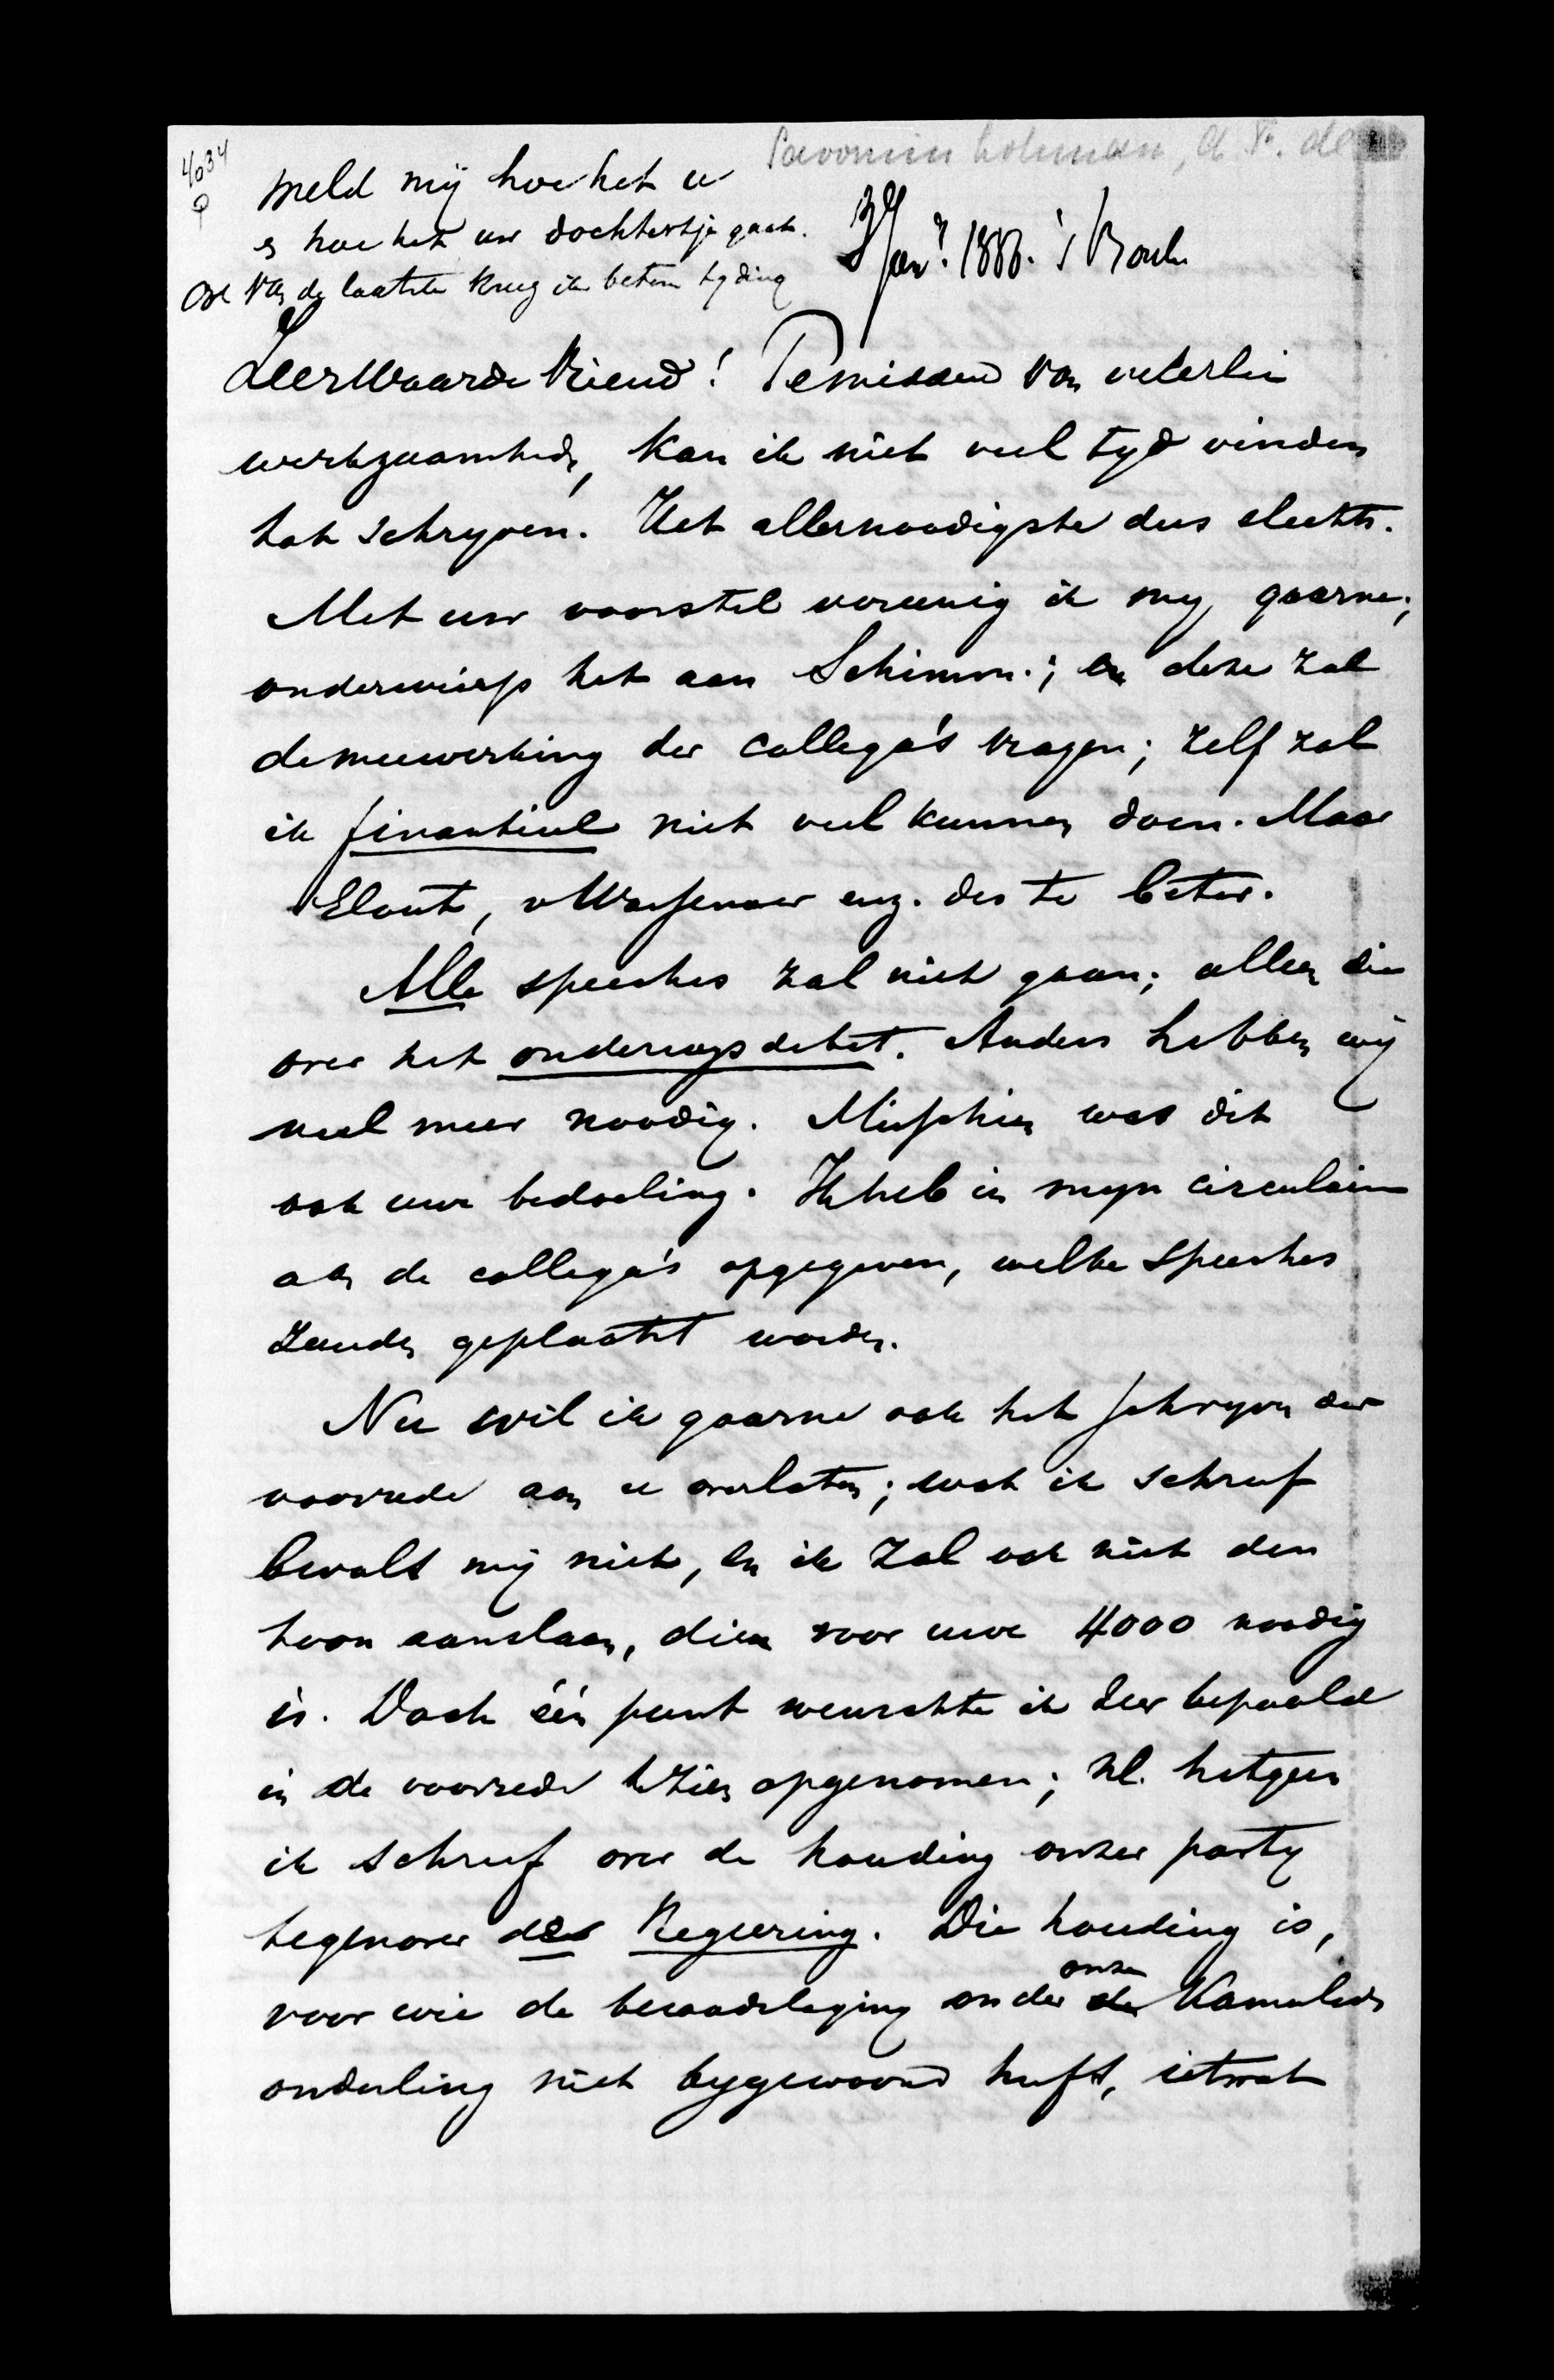 4034
Savornin Lohman, A. F. de
Meld mij hoe het u
en hoe het uw dochtertje gaat.
Ook van de laatste kreeg ik betere tyding
Jan. 1888. 's Bosch
Zeer Waarde Vriend! Temidden van velerlei
werkzaamheden, kan ik niet veel tyd vinden
tot schryven. Het allernoodigste dus slechts.
Met uw voorstel vereenig ik my gaarne;
onderwierp het aan Schimm.; en deze zal
de meewerking der collega's vragen; zelf zal
ik finantieel niet veel kunnen doen. Maar
Elout, v Wassenaer enz. des te beter.
Alle speeches zal niet gaan; alleen die
over het onderwysdebat. Anders hebben wij
veel meer noodig. Misschien was dit
ook uwe bedoeling. Ik heb in myn circulaire
aan de collega's opgegeven, welke speeches
zouden geplaatst worden.
Nu wil ik gaarne ook het schryven der
voorrede aan u overlaten; wat ik schreef
bevalt mij niet, en ik zal ook niet den
toon aanslaan, dien voor uwe 4000 noodig
is. Doch één punt wenschte ik zeer bepaald
in de voorrede te zien opgenomen; nl. hetgeen
ik schreef over de houding onzer party
tegenover deze Regeering. Die houding is,
voor wie de beraadslaging onder onze Kamerleden
onderling niet bygewoond heeft, ietwat